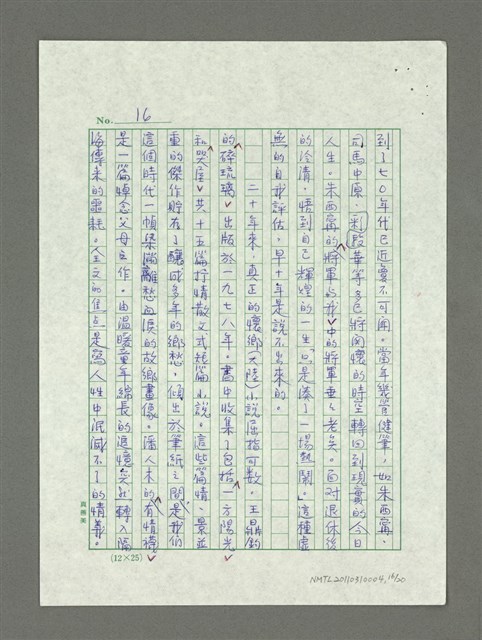 No. 16
到了七〇年代已近蔓不可聞。當年幾管健筆，如朱西甯、
司馬中原、段彩華等多已將關懷的時空轉回到現實的今日
人生。朱西甯的將軍与我中的將軍垂垂老矣。面对退休後
的冷清，悟到自己輝煌的一生只是湊了一場熱鬧。這種虛
無的自我評估，早十年是說不出來的。
二十年來，真正的懷鄉(大陸)小說屈指可数。王鼎鈞
的碎琉璃出版於一九七八年。書中收集了包括一方陽光
和哭屋共十五篇抒情散文式短篇小說。這些篇情、景並
重的傑作貯存了釀成多年的鄉愁，傾出於筆紙之間，是我們
這個時代一幀染滿離愁血淚的故鄉畫像。潘人木的有情襪
是一篇悼念父母之作。由溫暖童年綿長的追憶突然轉入隔
海傳來的噩耗。全文的焦点是寫人性中泯滅不了的情義。
(12×25)
NMTL20110310004, 16/20